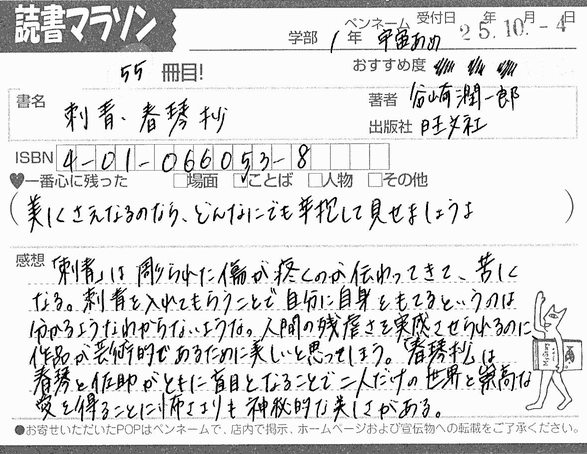 読書マラソン
学部 1年 ペンネーム 宇宙あめ 受付日 25年10月-4日
55 冊目! おすすめ度
書名 刺青、春琴抄 著者 谷崎潤一郎
出版社 旺文社
ISBN 4-01-066053-8
♥一番心に残った □場面 ☑ことば □人物 □その他
(美しくさえなるのなら、どんなにでも辛抱して見せましょうよ)
感想 「刺青」は彫られた傷が疼くのが伝わってきて、苦しく
なる。刺青を入れてもらうことで自分に自身をもてるというのは
分かるようなわからないような。人間の残虐さを実感させられるのに
作品が芸術的であるために美しいと思ってしまう。「春琴抄」は
春琴と佐助がともに盲目となることで二人だけの世界と崇高な
愛を得ることに怖さよりも神秘的な美しさがある。
●お寄せいただいたPOPはペンネームで、店内で掲示、ホームページおよび宣伝物への転載をご了承ください。